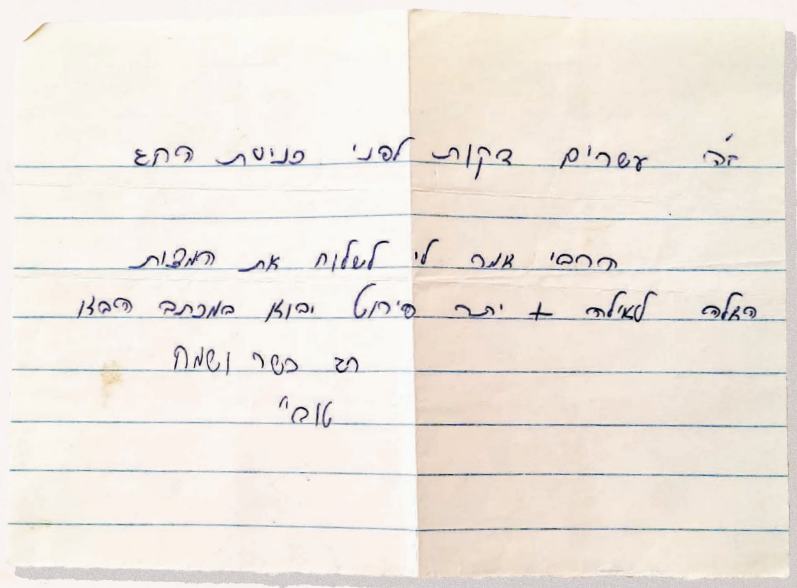 זה עשרים דקות לפני כניסת החג
הרבי אמר לי לשלוח את המצות
האלה לאילה + יתר פירוט יבוא במכתב הבא
חג כשר ושמח
טובי"